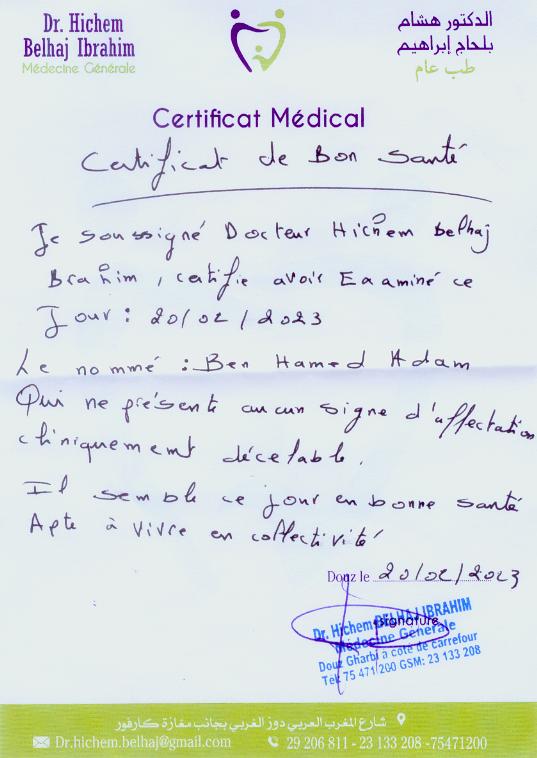 Dr. Hichem
Belhaj Ibrahim
Médecine Générale
الدكتور هشام
بلحاج إبراهيم
طب عام
Certificat Médical
Certificat de Bon Santé
Je soussigné Docteur Hichem belhaj
Brahim, certifie avoir Examiné ce
Jour : 20/02/2023
Le nommé : Ben Hamed Adam
Qui ne présente aucun signe d'affectation
cliniquement décelable.
Il semble ce jour en bonne santé
Apte à vivre en collectivité
Douz le 20/02/2023
signature
Dr. Hichem BELHAJ IBRAHIM
Médecine Générale
Douz Gharbi à coté de Carrefour
Tel: 75 471 200 GSM: 23 133 208
شارع المغرب العربي دوز الغربي بجانب مغازة كارفور
Dr.hichem.belhaj@gmail.com
29 206 811 - 23 133 208 -75471200